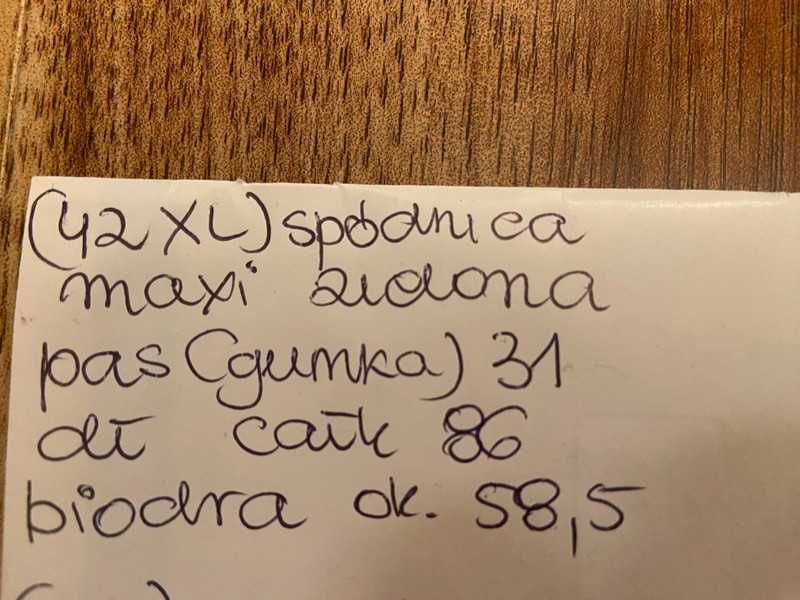 (42 XL) spódnica
maxi zielona
pas (gumka) 31
dł całk 86
biodra ok. 58,5